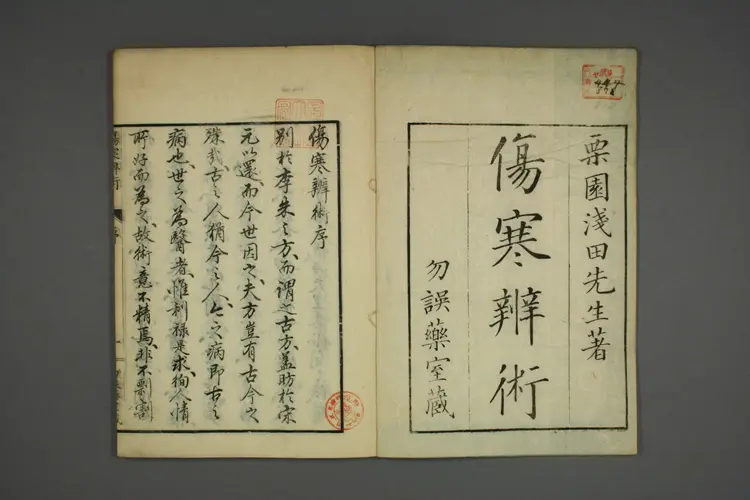 栗園淺田先生著
傷寒辨術
勿誤藥室藏
傷寒辨術序
別於李朱之方而謂之古方蓋昉於宋
元以還而今世因之夫方豈有古今之
殊哉古之人猶今之人今之病即古之
病也世之為醫者惟利祿是求徇人情
所好而為之故術竟不精焉非不剽割